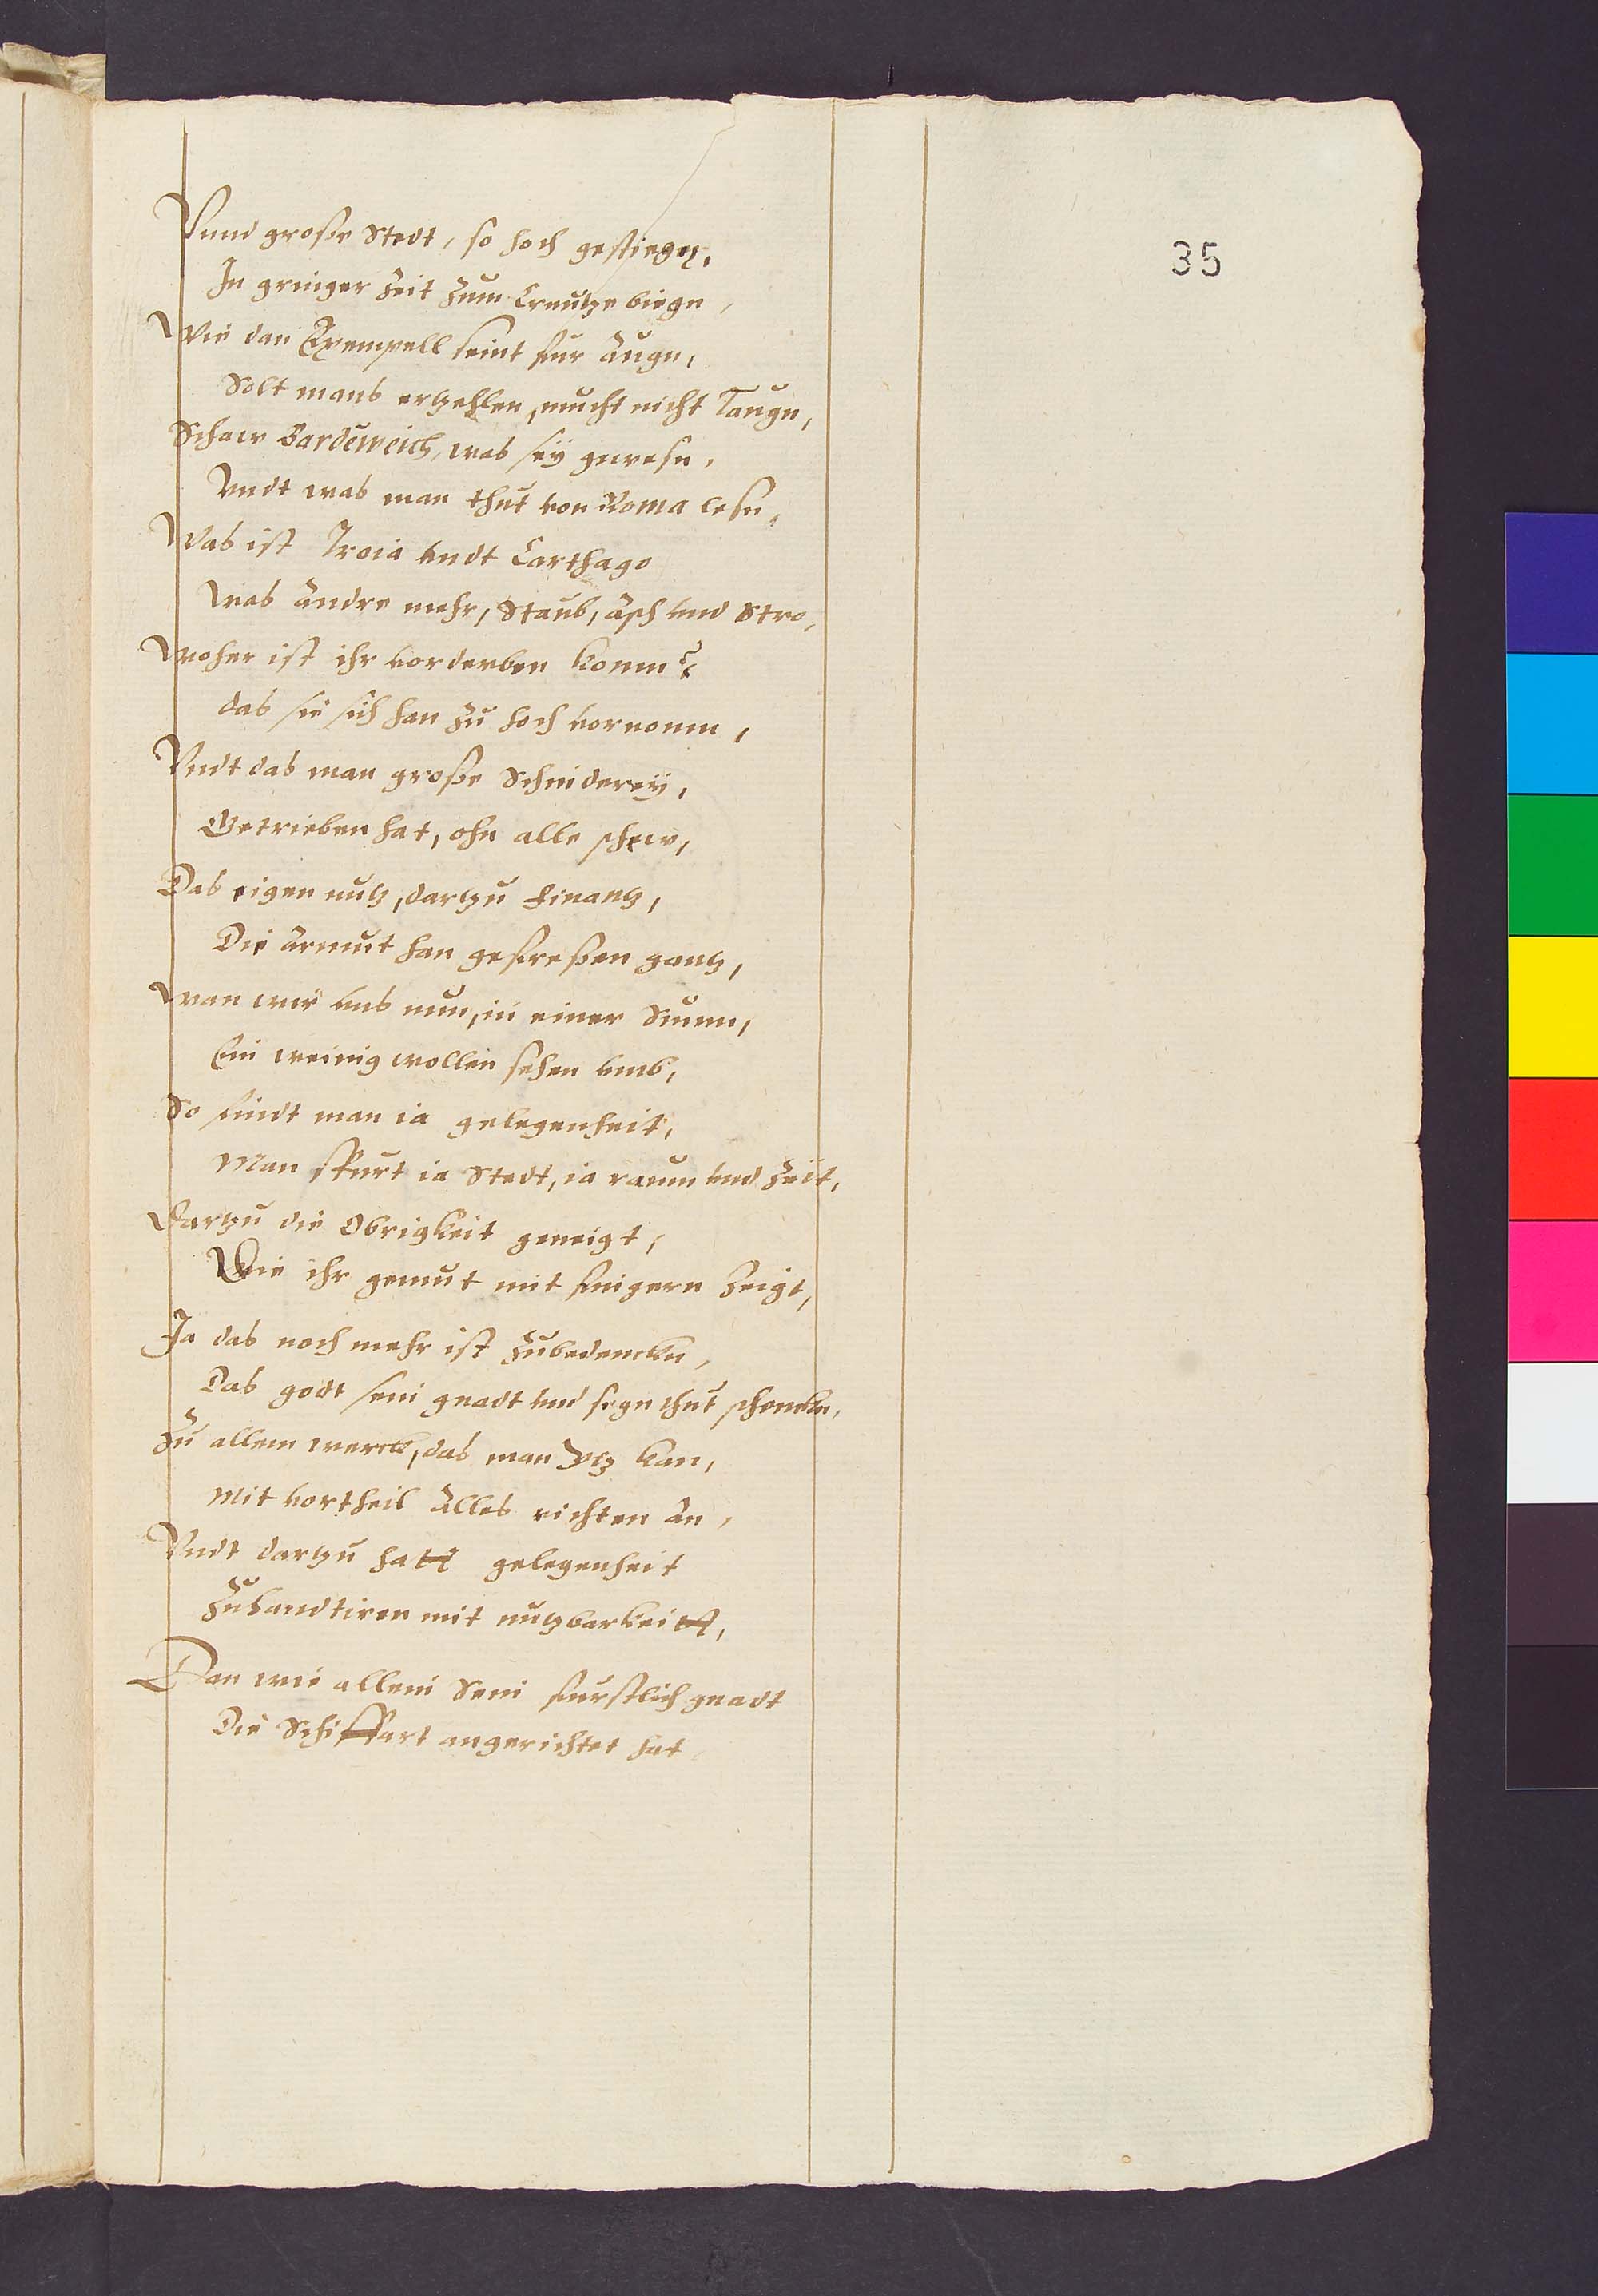 35
Vnnd große Stedt, so hoch gestiegn,
In gringer Zeit zum Creutze biegn,
Wie dan Exempell seint fur augn,
Solt mans ertzehlen, mucht nicht Taugn,
Schaw Bardeweich, was sÿ gewesn,
Vndt was man thut von Roma lesn,
Was ist Troia vndt Carthago
Was andre mehr, Staub, asch vnd Stro,
Woher ist ihr vorderben komm?
das sie sich han zu hoch vornomm,
Vndt das man große Schinderey,
Getrieben hat, ohn alle schew,
Das eigen nutz, dartzu Finantz,
Die armut han gefreßen gantz,
Wan wir vns nun, in einer Summ,
Ein weinig wollen sehen vmb,
So findt man ia gelegenheit,
Man spurt ia Stedt, ia raum vnd Zeit,
Dartzu die Obrigkeit geneigt,
Wie ihr gemut mit fingern Zeigt,
Ja das noch mehr ist Zubedenckn,
Das godt sein gnadt vnd segn thut schenckn,
Zu allem werck, das man Jtz kan,
Mit vortheil alles richten an,
Vndt dartzu hatt gelegenheit
Zuhandtiren mit nutzbarkeitt,
Dan wie allein Sein furstlich gnadt
Die Schiffart angerichtet hat